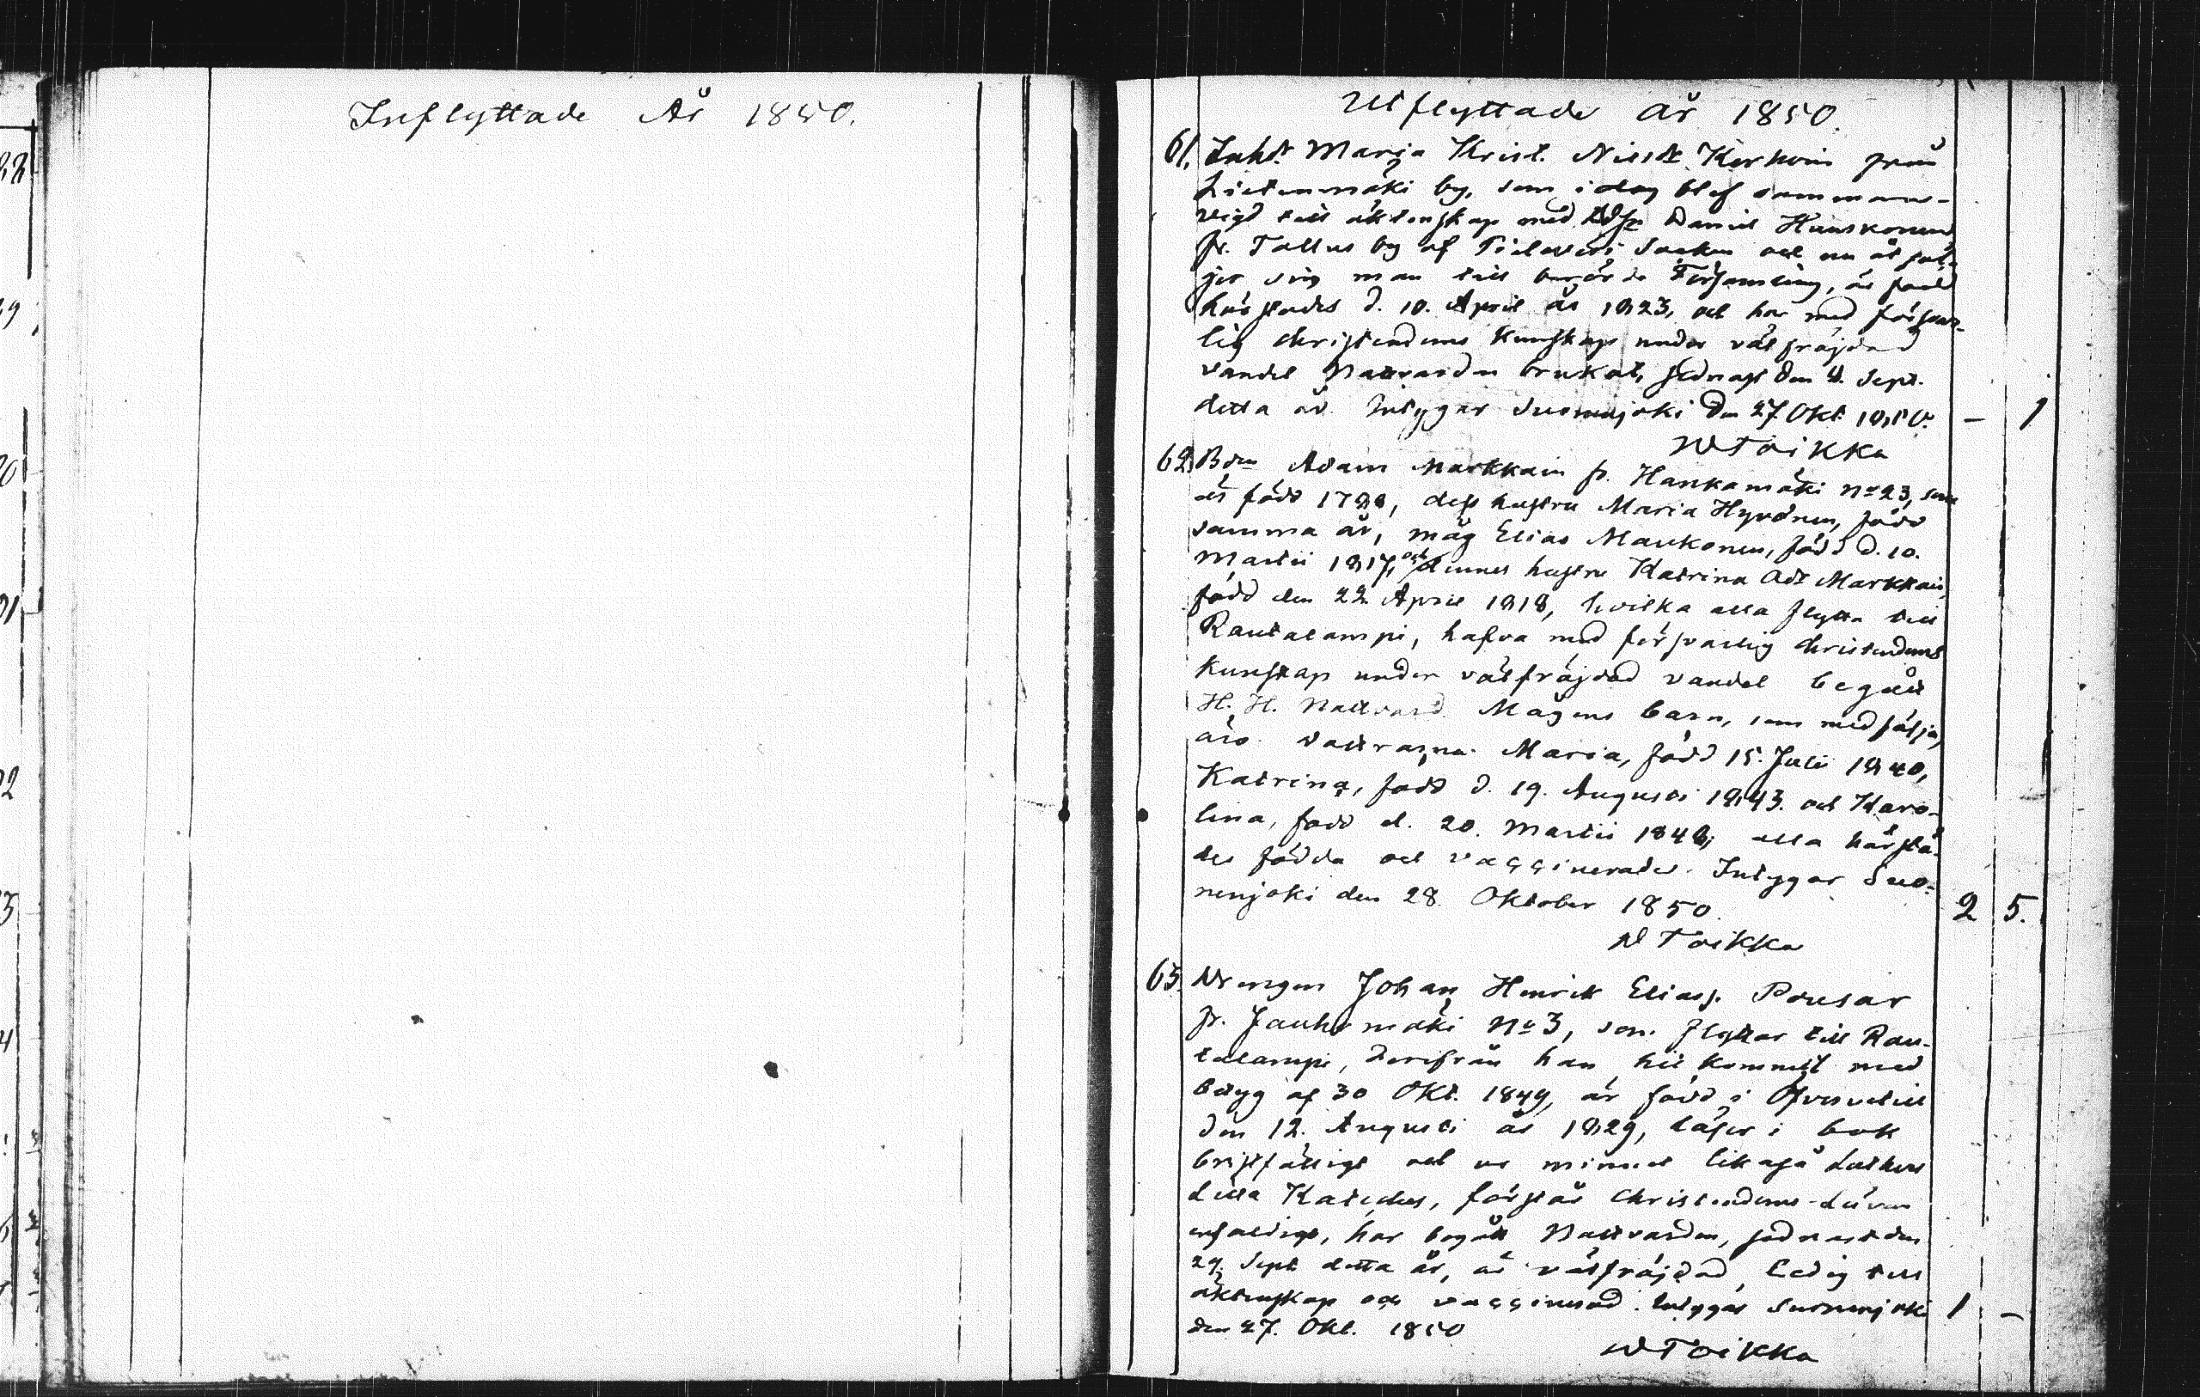 Inflyttade År 1850.
Utflyttade År 1850.
61. Inhdr Marja Krist. Nilsdr Korhoin från
Lietenmäki by, som i dag blef samman-
vigd till äktenskap med Daniel Huuskonen
fr. Tallus by af Pielavesi Socken och nu åtföl-
jer sin man till Församling, är född
härstädes d. 10. April år 1823, och har med försvar-
lig christendoms kunskap under välfräjdad
vandel Nattvarden brukat, sednast den 4. Sept.
detta år. Intygar Suonnejoki den 27 Okt 1850. - 1
W Toikka
62. Bdn Adam Markkain fr. Hankamäki No 23, som
är född 1798, dess hustru Maria Hyvönen, född
samma år, måg Elias Maukonen, född d. 10.
Martii 1817, och dennes hustru Katrina Adr Markkain,
född den 22 April 1818, hvilka alla flytta till
Rautalampi, hafva med försvarlig christendoms
kunskap under välfräjdad vandel begått
H. H. Nattvard. Mågens barn, som medfölja,
äro döttrarna: Maria, född 15. Julii 1840,
Katrina, född d. 19. Augusti 1843. och Karo-
lina, född d. 20. Martii 1848, alla härstä-
des födda och vaccinerade. Intygar Suo-
nenjoki den 28. Oktober 1850. 2 5.
W Toikka
63. Drengen Johan Henrik Eliass. Pousar
fr. Jauhomäki No 3, som flyttar till Rau-
talampi, derifrån han hit kommit med
betyg af 30 Okt. 1849, är född i Öfvervetill
den 12. Augusti år 1829, läser i bok
bristfälligt och ur minnet likaså Lutheri
Lilla Kateches, förstår Christendoms-Läran
enfaldigt, har begått Nattvarden, sednast den
29. Sept detta år, är välfräjdad, ledig till
äktenskap och vaccinerad. Intygar Suonenjoki 1 -
den 27. Okt. 1850
W Toikka